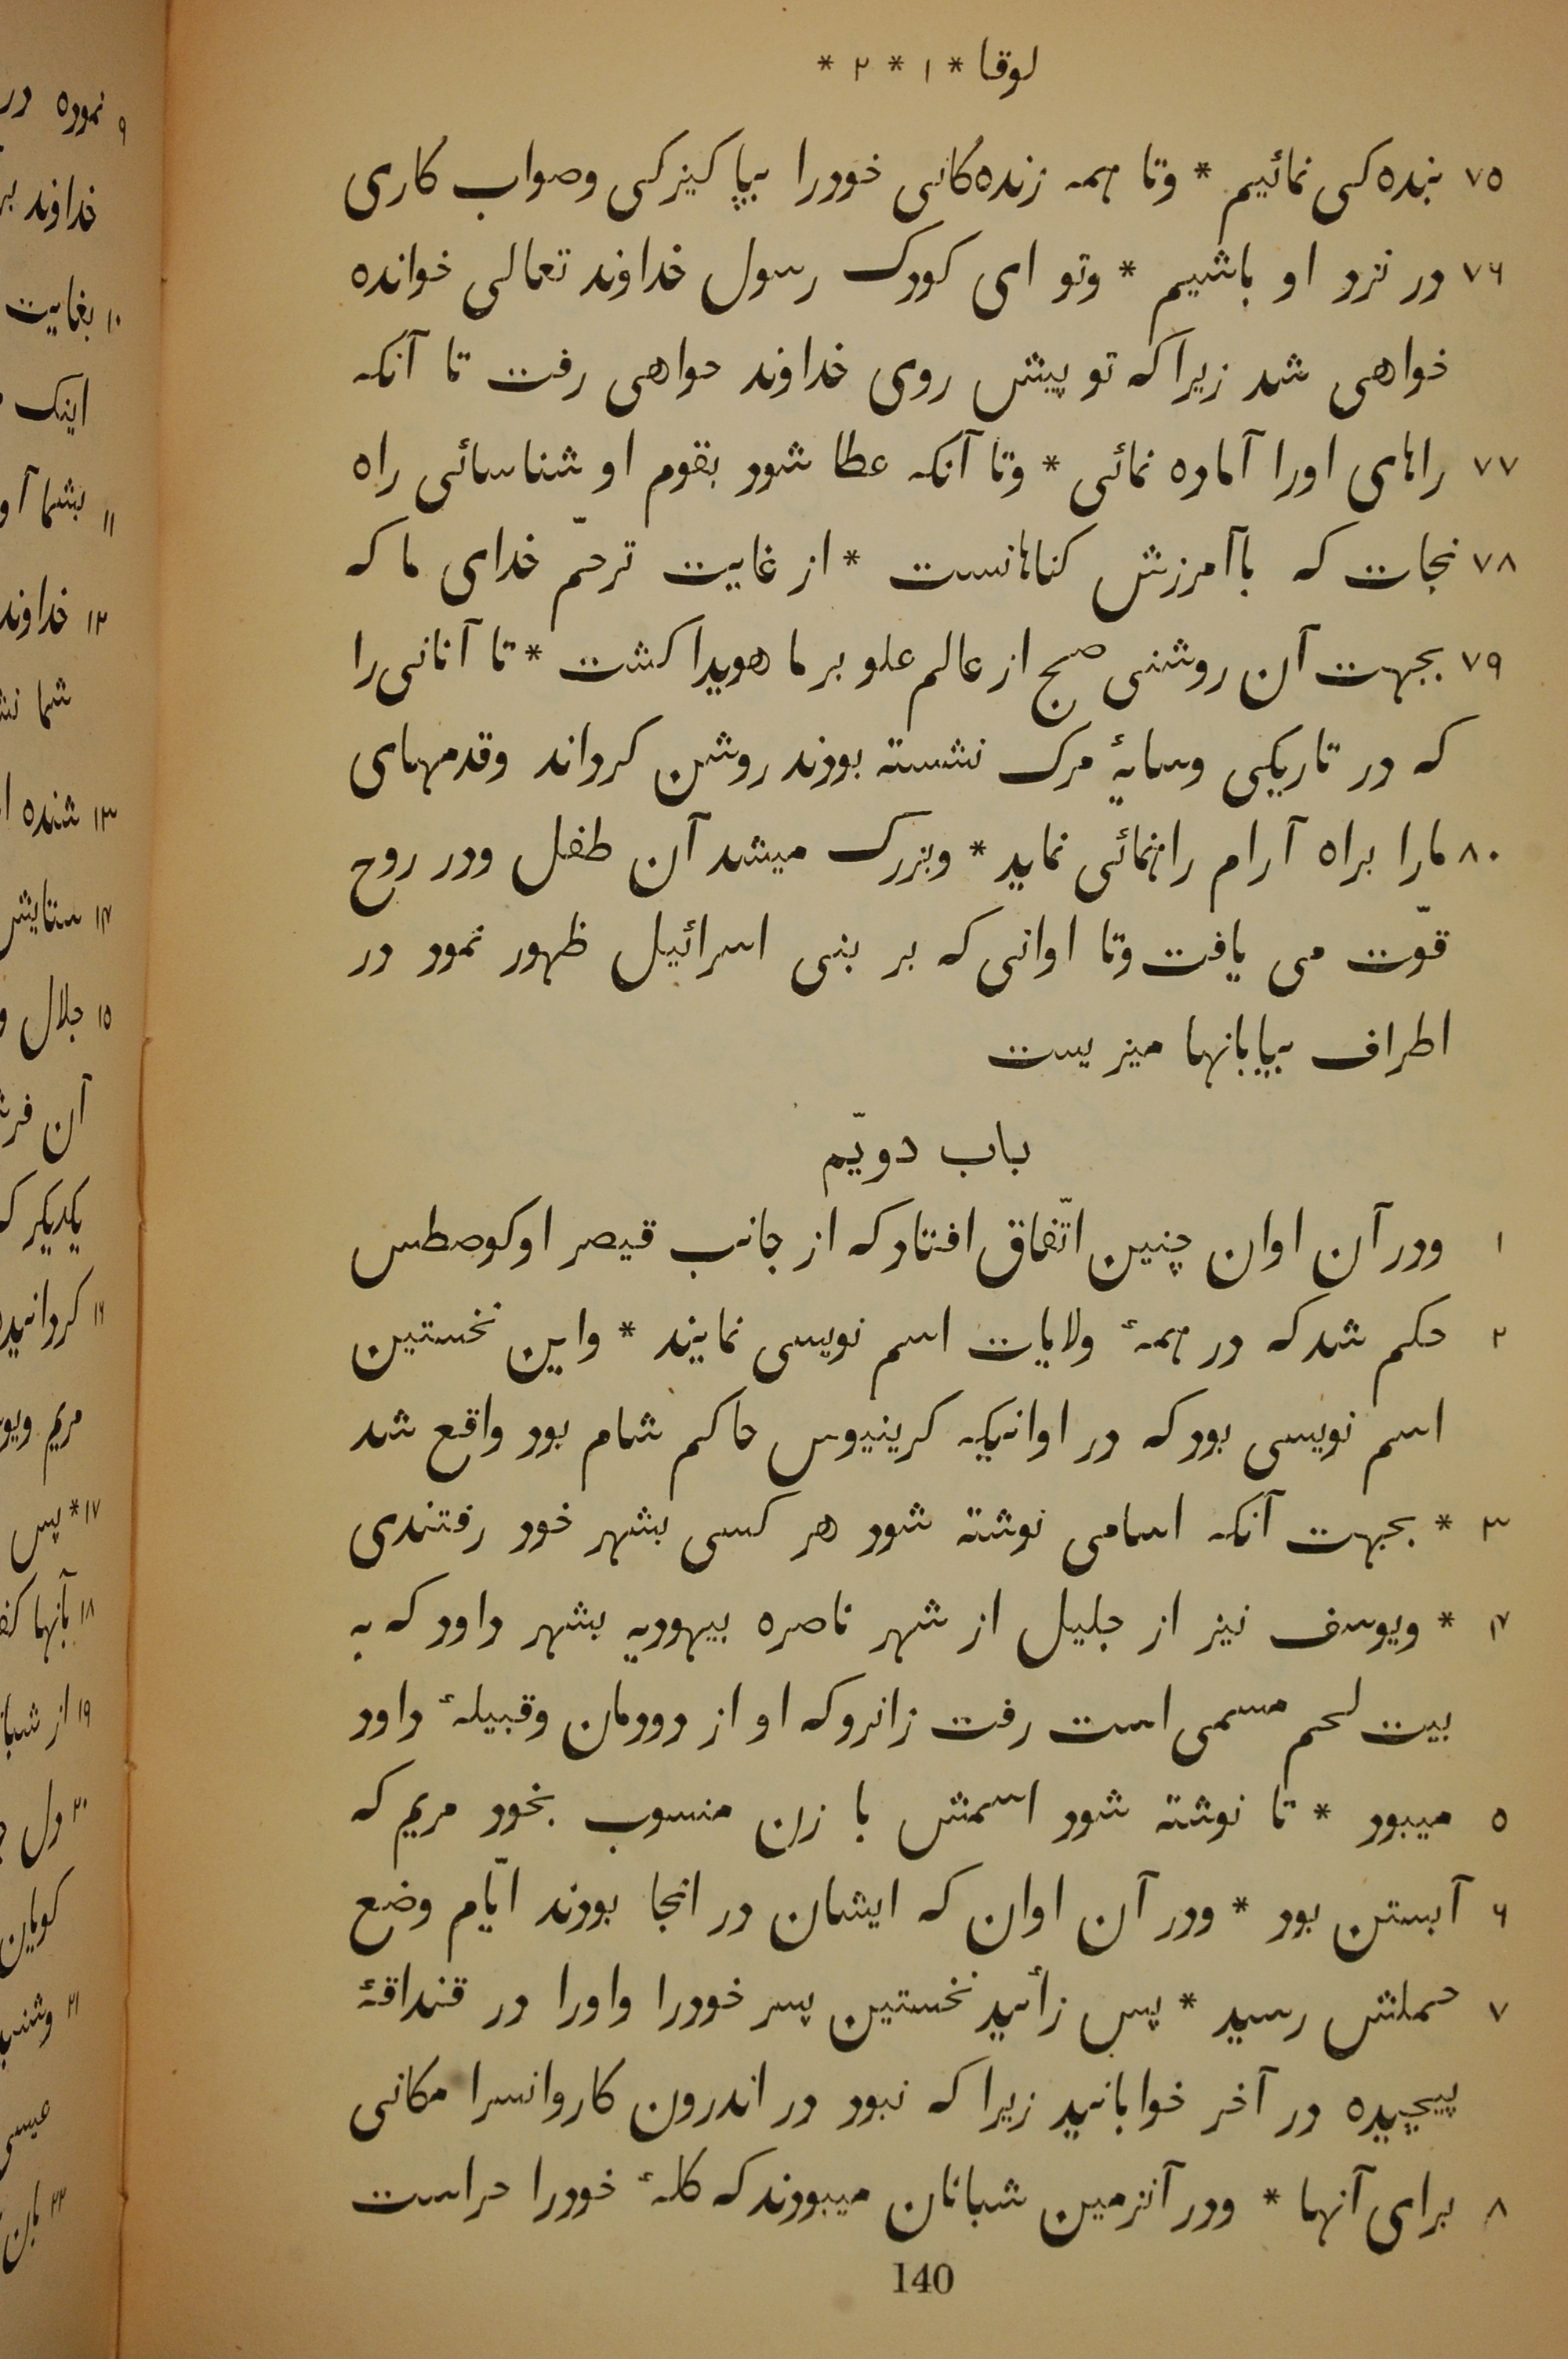 لوقا * ١ * ٢ *
٧٥ بنده کی نمائیم * وتا همه زنده کانی خودرا بپاکیزکی وصواب کاری
٧٦ در نزد او باشیم * وتو ای کودک رسول خداوند تعالی خوانده
خواهی شد زیراکه تو پیش روی خداوند خواهی رفت تا آنکه
٧٧ راهای اورا آماده نمائی * وتا آنکه عطا شود بقوم او شناسائی راه
٧٨ نجات که باآمرزش کناهانست * از غایت ترحّم خدای ما که
٧٩ بجهت آن روشنی صبح از عالم علو بر ما هویدا کشت * تا آنانی را
که در تاریکی وسایهٔ مرک نشسته بودند روشن کرداند وقدمهای
٨٠ مارا براه آرام راهنمائی نماید * وبزرک میشد آن طفل ودر روح
قوّت می یافت وتا اوانی که بر بنی اسرائیل ظهور نمود در
اطراف بیابانها میزیست
باب دویّم
١ ودر آن اوان چنین اتّفاق افتاد که از جانب قیصر اوکوصطس
٢ حکم شد که در همهٔ ولایات اسم نویسی نمایند * واین نخستین
اسم نویسی بود که در اوانیکه کرینیوس حاکم شام بود واقع شد
٣ * بجهت آنکه اسامی نوشته شود هر کسی بشهر خود رفتندی
۴ * ویوسف نیز از جلیل از شهر ناصره بیهودیه بشهر داود که به
بیت لحم مسمی است رفت زانروکه او از دودمان وقبیلهٔ داود
٥ میبود * تا نوشته شود اسمش با زن منسوب بخود مریم که
٦ آبستن بود * ودر آن اوان که ایشان در انجا بودند ایّام وضع
٧ حملش رسید * پس زأئید نخستین پسر خودرا واورا در قنداقهٔ
پیچیده در آخر خوابانید زیرا که نبود در اندرون کاروانسرا مکانی
٨ برای آنها * ودر آنزمین شبانان میبودند که کلهٔ خودرا حراست
140
٩ نموده در
خداوند بر
١٠ بغایت
اینک
١١ بشما آو
١٢ خداوند
شما نش
١٣ شنده ا
١۴ ستایش
١٥ جلال و
آن فرش
یکدیکر ک
١٦ کردانیده
مریم ویو
١٧ * پس
١٨ بآنها کف
١٩ از شبا
٢٠ دل
کویان
٢١ وشنید
عیسی
٢٢